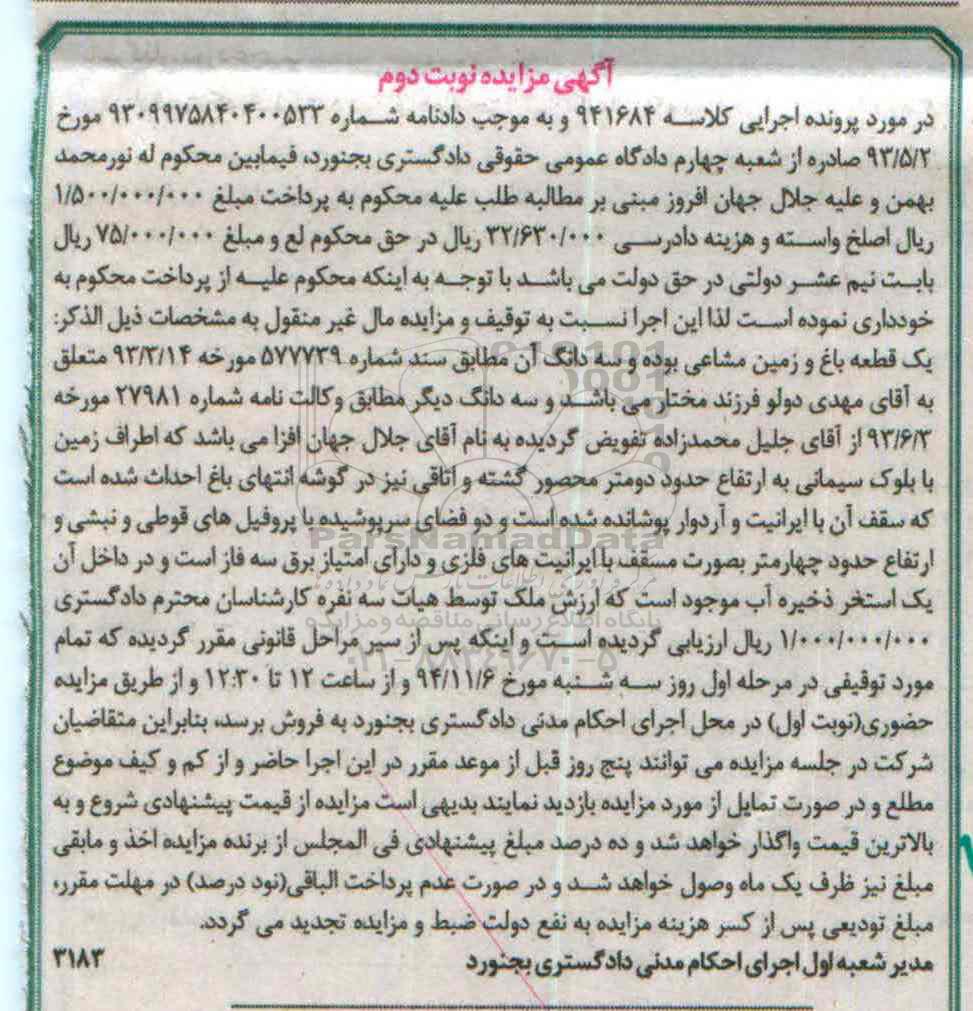 آگهی مزایده نوبت دوم
در مورد پرونده اجرایی کلاسه ۹۴۱۶۸۴ و به موجب دادنامه شماره ۹۳۰۹۹۷۵۸۴۰۴۰۰۵۳۳ مورخ
۹۳/۵/۲ صادره از شعبه چهارم دادگاه عمومی حقوقی دادگستری بجنورد، فیمابین محکوم له نورمحمد
بهمن و علیه جلال جهان افروز مبنی بر مطالبه طلب علیه محکوم به پرداخت مبلغ ۱/۵۰۰/۰۰۰/۰۰۰
ریال اصلخ واسته و هزینه دادرسی ۳۲/۶۳۰/۰۰۰ ریال در حق محکوم لع و مبلغ ۷۵/۰۰۰/۰۰۰ ریال
بابت نیم عشر دولتی در حق دولت می باشد با توجه به اینکه محکوم علیه از پرداخت محکوم به
خودداری نموده است لذا این اجرا نسبت به توقیف و مزایده مال غیر منقول به مشخصات ذیل الذکر:
یک قطعه باغ و زمین مشاعی بوده و سه دانگ آن مطابق سند شماره ۵۷۷۷۳۹ مورخه ۹۳/۳/۱۴ متعلق
به آقای مهدی دولو فرزند مختار می باشد و سه دانگ دیگر مطابق وکالت نامه شماره ۲۷۹۸۱ مورخه
۹۳/۶/۳ از آقای جلیل محمدزاده تفویض گردیده به نام آقای جلال جهان افزا می باشد که اطراف زمین
با بلوک سیمانی به ارتفاع حدود دومتر محصور گشته و اتاقی نیز در گوشه انتهای باغ احداث شده است
که سقف آن با ایرانیت و آردوار پوشانده شده است و دو فضای سرپوشیده با پروفیل های قوطی و نبشی و
ارتفاع حدود چهارمتر بصورت مسقف با ایرانیت های فلزی و دارای امتیاز برق سه فاز است و در داخل آن
یک استخر ذخیره آب موجود است که ارزش ملک توسط هیات سه نفره کارشناسان محترم دادگستری
۱/۰۰۰/۰۰۰/۰۰۰ ریال ارزیابی گردیده است و اینکه پس از سیر مراحل قانونی مقرر گردیده که تمام
مورد توقیفی در مرحله اول روز سه شنبه مورخ ۹۴/۱۱/۶ و از ساعت ۱۲ تا ۱۲:۳۰ و از طریق مزایده
حضوری(نوبت اول) در محل اجرای احکام مدنی دادگستری بجنورد به فروش برسد، بنابراین متقاضیان
شرکت در جلسه مزایده می توانند پنج روز قبل از موعد مقرر در این اجرا حاضر و از کم و کیف موضوع
مطلع و در صورت تمایل از مورد مزایده بازدید نمایند بدیهی است مزایده از قیمت پیشنهادی شروع و به
بالاترین قیمت واگذار خواهد شد و ده درصد مبلغ پیشنهادی فی المجلس از برنده مزایده اخذ و مابقی
مبلغ نیز ظرف یک ماه وصول خواهد شد و در صورت عدم پرداخت الباقی(نود درصد) در مهلت مقرر،
مبلغ تودیعی پس از کسر هزینه مزایده به نفع دولت ضبط و مزایده تجدید می گردد.
مدیر شعبه اول اجرای احکام مدنی دادگستری بجنورد ۳۱۸۳
ParsNamadData
پایگاه اطلاع رسانی مناقصه و مزایده
۰۲۱-۸۸۳۴۹۶۷۰-۵